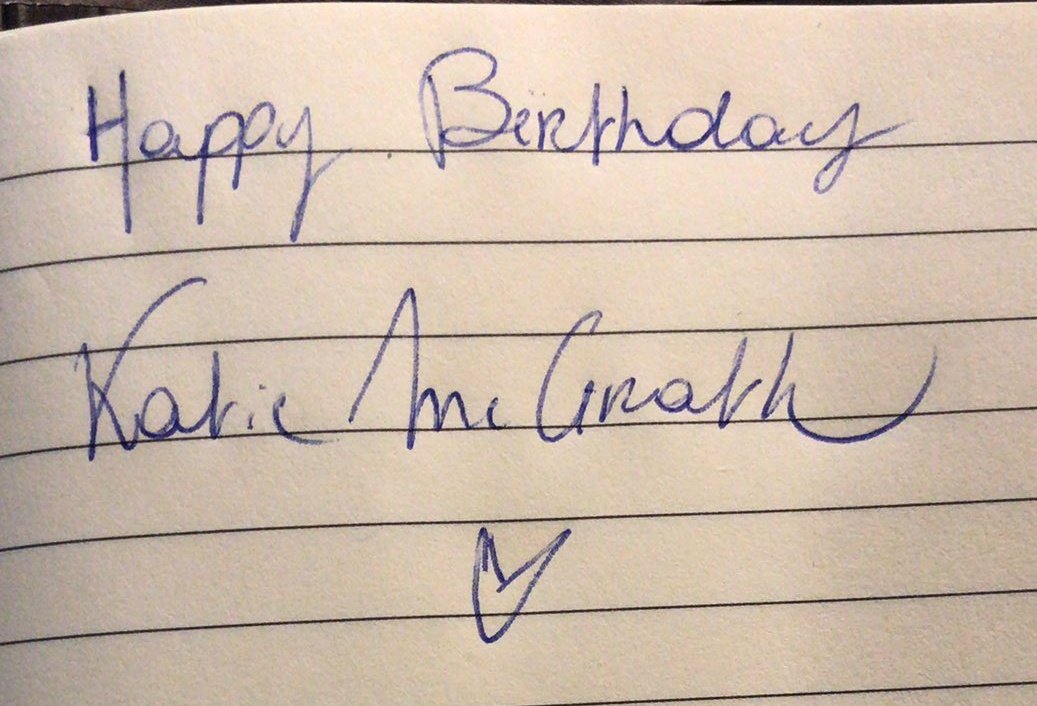 Happy Birthday
Katie McGrath